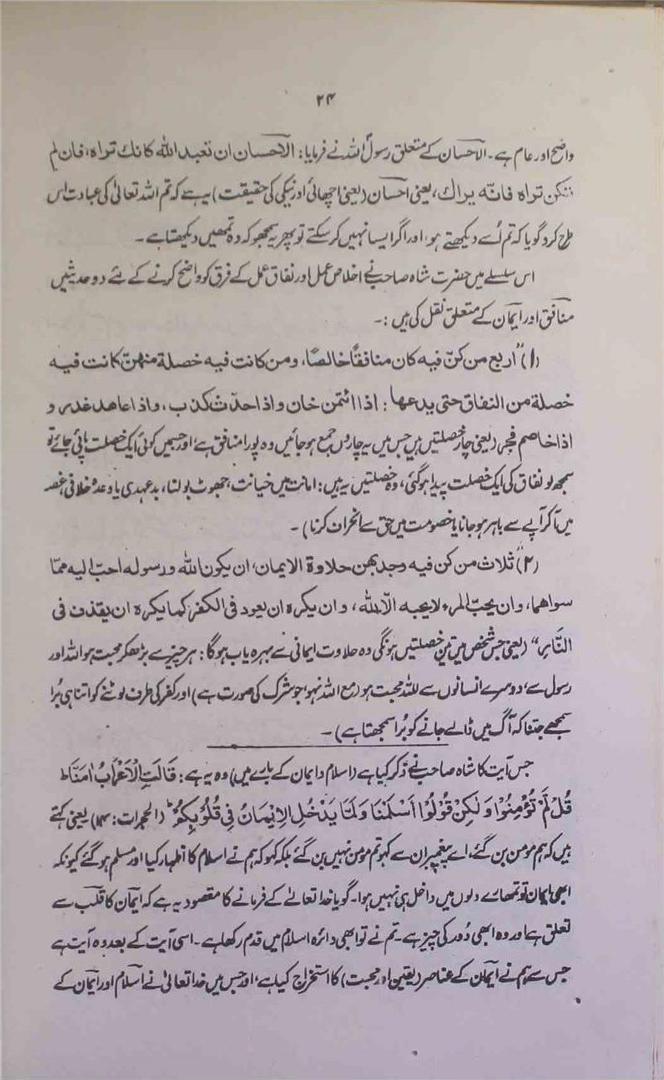 ۲۴
واضح اور عام ہے۔ الاحسان کے متعلق رسول اللہ نے فرمایا: الاحسان ان تعبد اللہ کانك تراہ، فان لم
تکن تراہ فانّہ یراك، یعنی احسان (یعنی اچھائی اور نیکی کی حقیقت) یہ ہے کہ تم اللہ تعالیٰ کی عبادت اس
طرح کرو گویا کہ تم اُسے دیکھتے ہو، اور اگر ایسا نہیں کر سکتے تو پھر یہ سمجھو کہ وہ تمھیں دیکھتا ہے۔
اس سلسلے میں حضرت شاہ صاحب نے اخلاص عمل اور نفاق عمل کے فرق کو واضح کرنے کے لئے دو حدیثیں
منافق اور ایمان کے متعلق نقل کی ہیں:۔
(۱) "اربع من کنّ فیہ کان منافقًا خالصًا، ومن کانت فیہ خصلۃ منھنّ کانت فیہ
خصلۃ من النفاق حتی یدعھا: اذا ائتمن خان واذا حدّث کذب، واذا عاھد غدر، و
اذا خاصم فجر (یعنی چار خصلتیں ہیں جس میں یہ چاروں جمع ہو جائیں وہ پورا منافق ہے اور جسمیں کوئی ایک خصلت پائی جائے تو
سمجھو نفاق کی ایک خصلت پیدا ہو گئی، وہ خصلتیں یہ ہیں: امانت میں خیانت، جھوٹ بولنا، بدعہدی یا وعدہ خلافی، غصہ
میں آکر آپے سے باہر ہو جانا یا خصومت میں حق سے انحراف کرنا)۔
(۲) "ثلاث من کن فیہ وجد بھن حلاوۃ الایمان، ان یکون اللہ ورسولہ احبّ الیہ ممّا
سواھما، وان یحبّ المرء لا یحبہ الّا للہ، وان یکرہ ان یعود فی الکفر کما یکرہ ان یقذف فی
النّار" (یعنی جس شخص میں تین خصلتیں ہونگی وہ حلاوت ایمانی سے بہرہ یاب ہوگا: ہر چیز سے بڑھکر محبت ہو اللہ اور
رسول سے، دوسرے انسانوں سے للّٰہ محبت ہو (مع اللہ نہو، جو شرک کی صورت ہے) اور کفر کی طرف لوٹنے کو اتنا ہی بُرا
سمجھے جتنا کہ آگ میں ڈالے جانے کو بُرا سمجھتا ہے)۔
جس آیت کا شاہ صاحب نے ذکر کیا ہے (اسلام و ایمان کے بارے میں) وہ یہ ہے: قَالَتِ الْاَعْرَابُ اٰمَنَّا ط
قُلْ لَّمْ تُؤْمِنُوْا وَلٰكِنْ قُوْلُوْا اَسْلَمْنَا وَلَمَّا يَدْخُلِ الْاِيْمَانُ فِيْ قُلُوْبِكُمْ ط (الحجرات: ۱۴) یعنی کہتے
ہیں کہ ہم مومن بن گئے، اے پیغمبر ان سے کہو تم مومن نہیں بن گئے بلکہ کہو کہ ہم نے اسلام کا اظہار کیا اور مسلم ہو گئے کیونکہ
ابھی ایمان تو تمھارے دلوں میں داخل ہی نہیں ہوا۔ گویا خدا تعالےٰ کے فرمانے کا مقصود یہ ہے کہ ایمان کا قلب سے
تعلق ہے اور وہ ابھی دُور کی چیز ہے۔ تم نے تو ابھی دائرہ اسلام میں قدم رکھا ہے۔ اسی آیت کے بعد وہ آیت ہے
جس سے ہم نے ایمان کے عناصر (یقین اور محبت) کا استخراج کیا ہے، اور جس میں خدا تعالیٰ نے اسلام اور ایمان کے